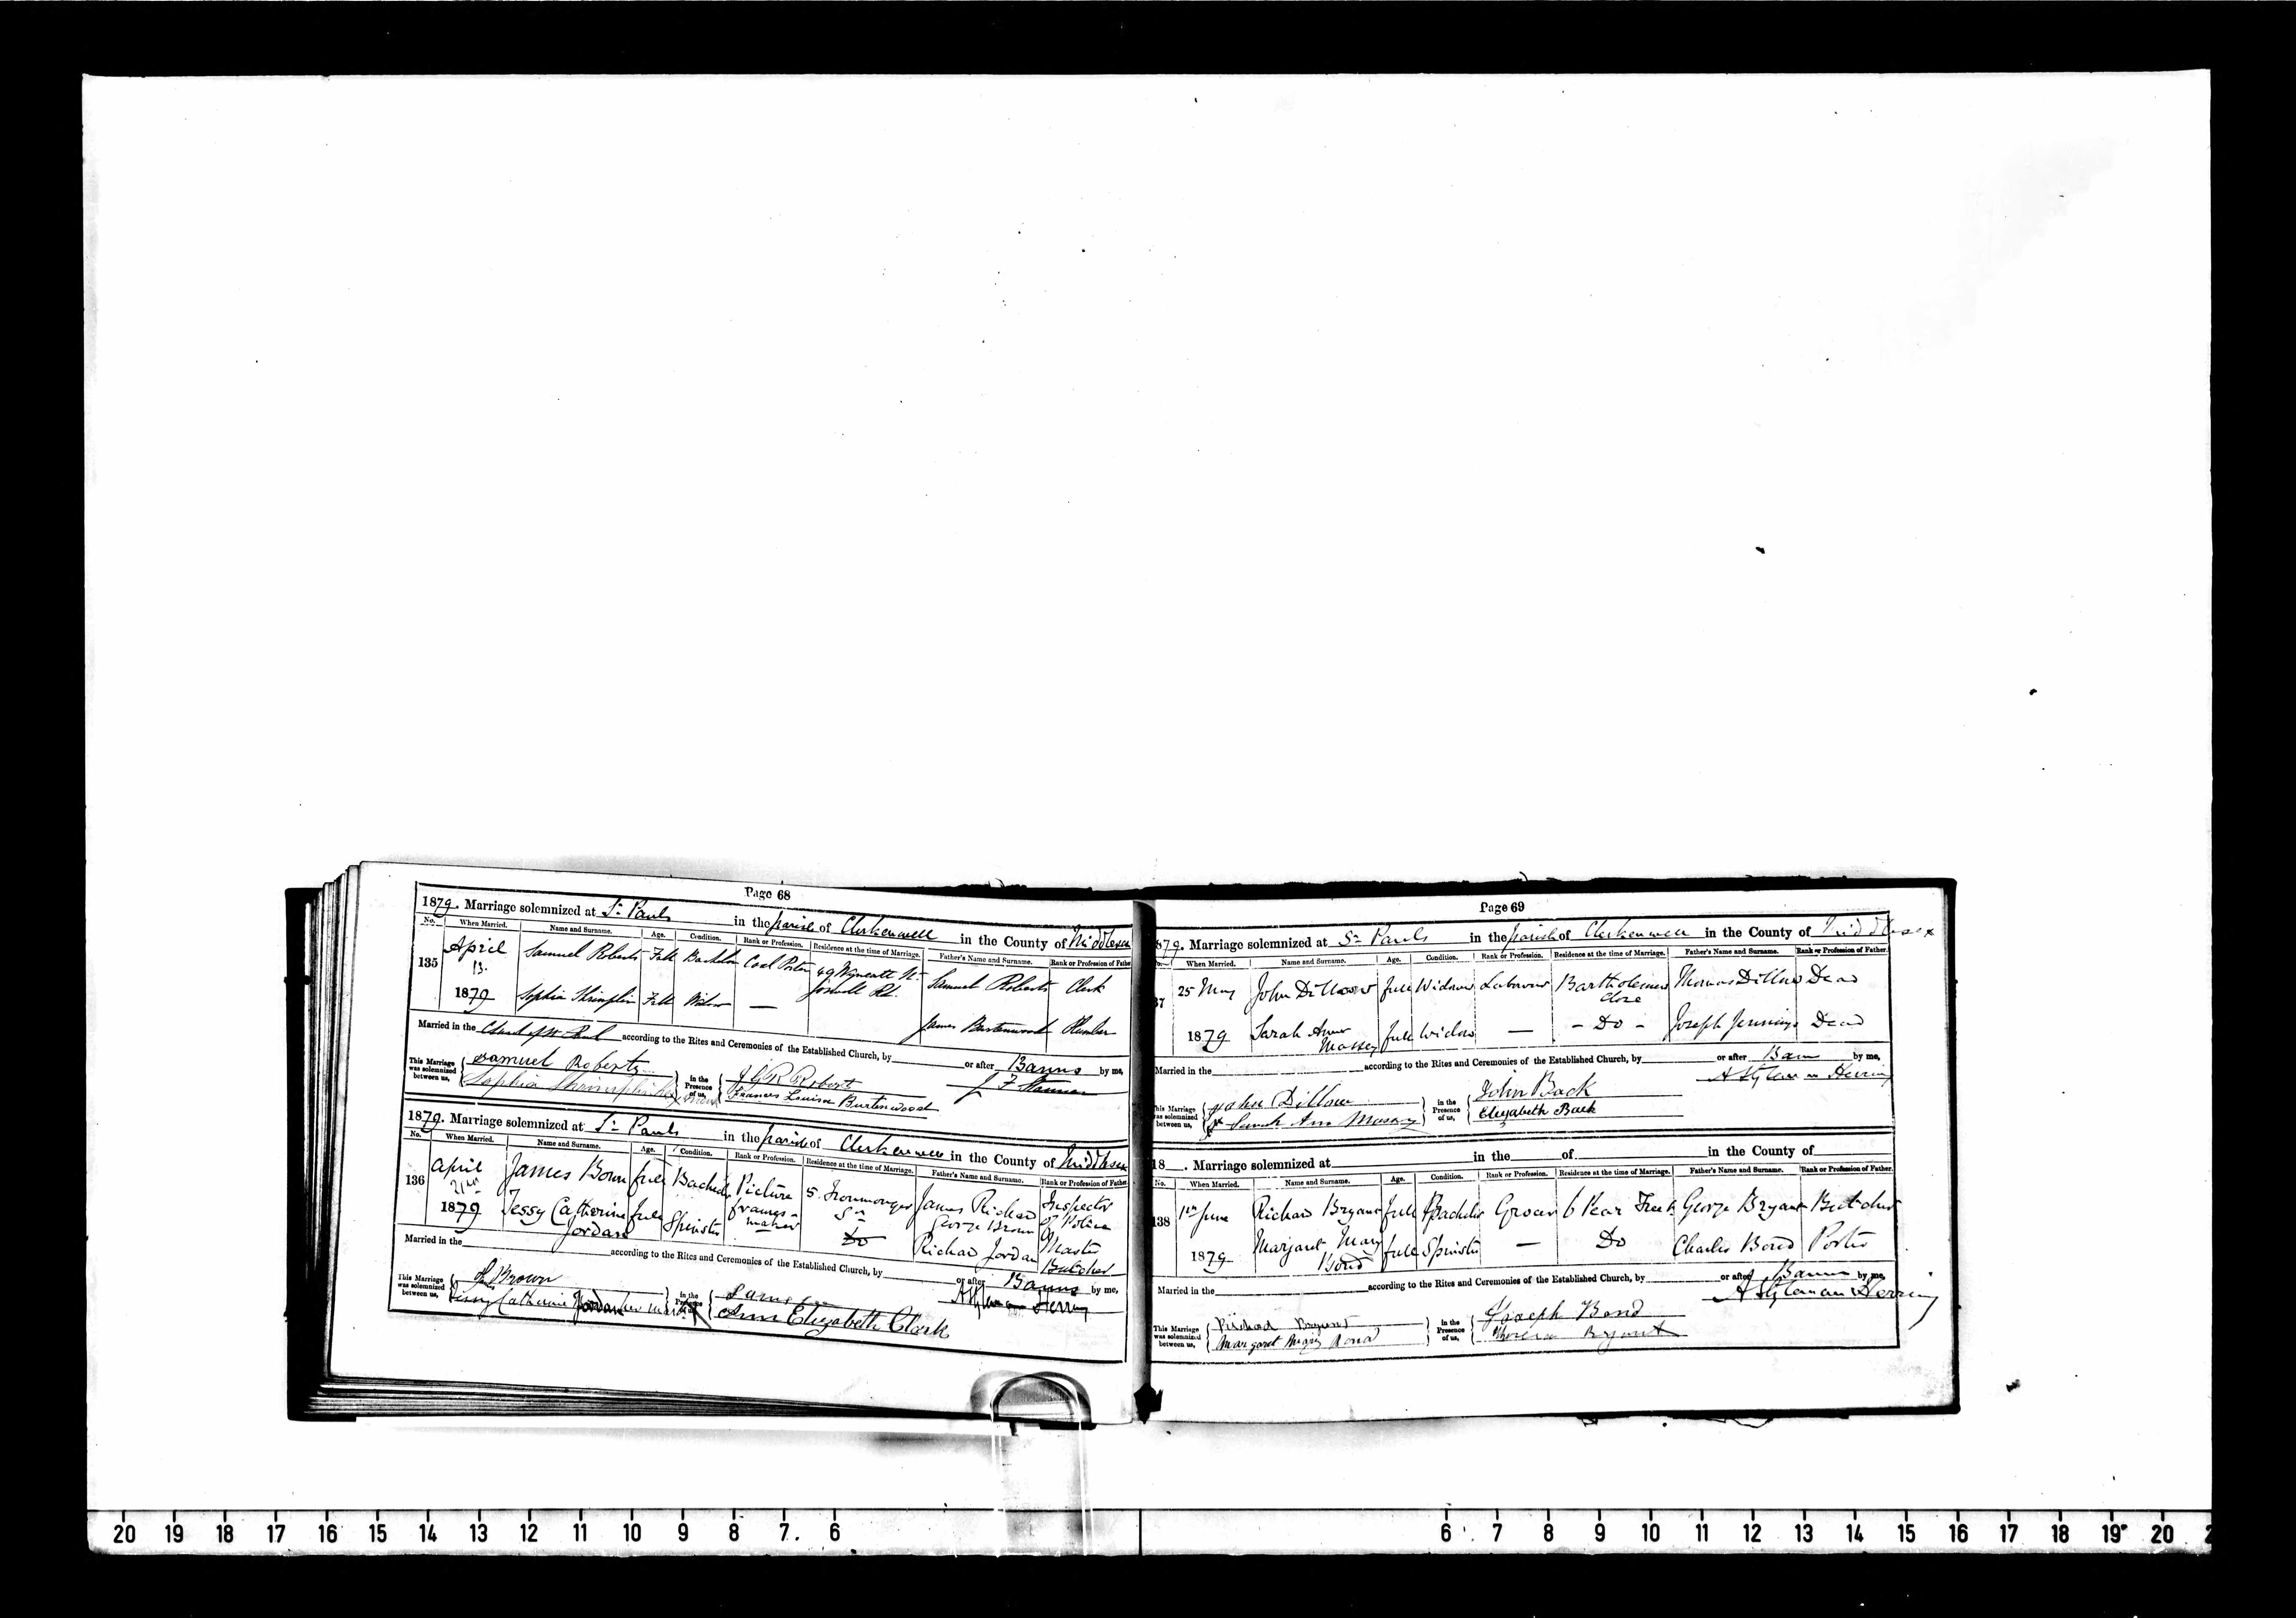 Page 68
1879. Marriage solemnized at St Pauls in the parish of Clerkenwell in the County of Middlesex
No. When Married. Name and Surname. Age. Condition. Rank or Profession. Residence at the time of Marriage. Father's Name and Surname. Rank or Profession of Father
135 April 13. 1879 Samuel Roberts Full Bachelor Coal Porter 49 Wynyatt St. Goswell Rd. Samuel Roberts Clerk
Sophia Shrimplin Full Widow — James Burtenwood Plumber
Married in the Church of St Paul according to the Rites and Ceremonies of the Established Church, by or after Banns by me,
This Marriage was solemnized between us, Samuel Roberts in the Presence of us, J G R Roberts
Sophia Shrimplin Frances Louisa Burtenwood
1879. Marriage solemnized at St Pauls in the parish of Clerkenwell in the County of Middlesex
No. When Married. Name and Surname. Age. Condition. Rank or Profession. Residence at the time of Marriage. Father's Name and Surname. Rank or Profession of Father
136 April 21st 1879 James Bown full Bachelor Picture frame maker 5 Ironmonger St James Richard George Brown Inspector of Police
Jessy Catherine Jordan full Spinster Do Richard Jordan Master Butcher
Married in the according to the Rites and Ceremonies of the Established Church, by or after Banns by me,
This Marriage was solemnized between us, Brown in the Presence of us,
A Styleman Herring
Jessy Catherine Jordan her mark X Ann Elizabeth Clark
Page 69
879. Marriage solemnized at St Pauls in the parish of Clerkenwell in the County of Middlesex
No. When Married. Name and Surname. Age. Condition. Rank or Profession. Residence at the time of Marriage. Father's Name and Surname. Rank or Profession of Father.
37 25 May 1879 John Dillow full Widower Labourer Bartholomew Close Thomas Dillow Dead
Sarah Ann Massey full Widow — - Do - Joseph Jennings Dead
Married in the according to the Rites and Ceremonies of the Established Church, by or after Bann by me,
A Styleman Herring
This Marriage was solemnized between us, John Dillow in the Presence of us, John Back
X Sarah Ann Massey Elizabeth Back
18 . Marriage solemnized at in the of in the County of
No. When Married. Name and Surname. Age. Condition. Rank or Profession. Residence at the time of Marriage. Father's Name and Surname. Rank or Profession of Father.
138 1st June 1879 Richard Bryant full Bachelor Grocer 6 Pear Tree St George Bryant Butcher
Margaret Mary Bond full Spinster — Do Charles Bond Porter
Married in the according to the Rites and Ceremonies of the Established Church, by or after Banns by me,
A Styleman Herring
This Marriage was solemnized between us, Richard Bryant in the Presence of us, Joseph Bond
Margaret Mary Bond Theresa Bryant
20 19 18 17 16 15 14 13 12 11 10 9 8 7 6 6 7 8 9 10 11 12 13 14 15 16 17 18 19 20